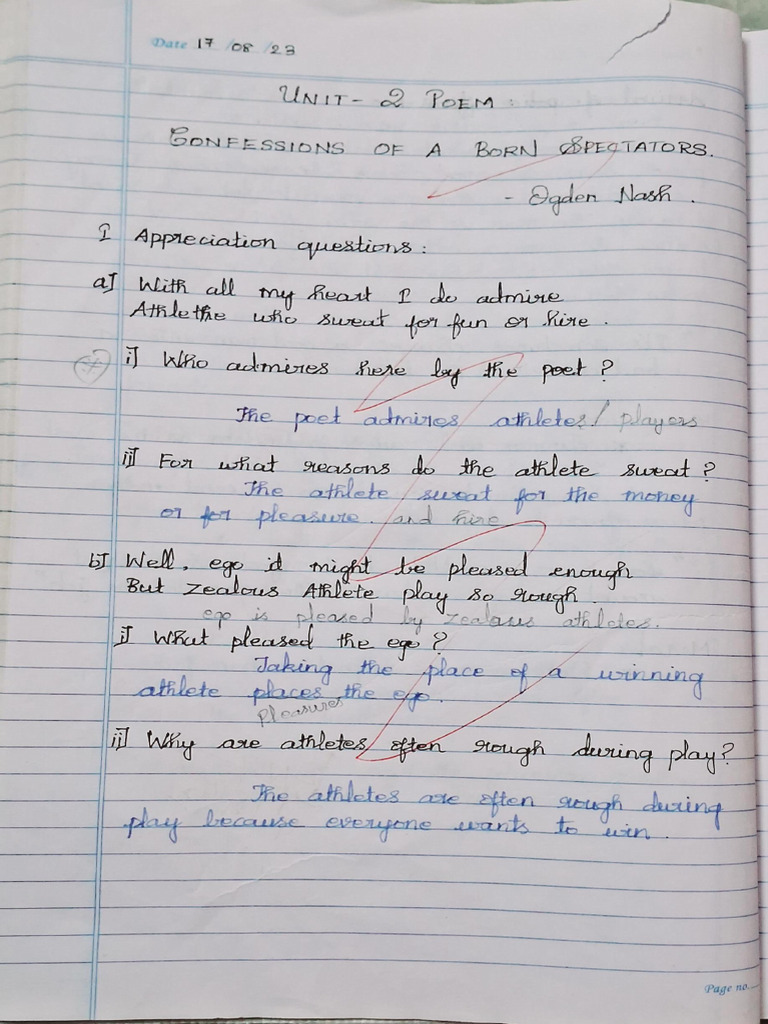 Date 17 /08 /23
UNIT- 2 POEM:
CONFESSIONS OF A BORN SPECTATORS.
- Ogden Nash.
I Appreciation questions:
a] With all my heart I do admire
Athlethe who sweat for fun or hire.
i] Who admires here by the poet?
The poet admires athletes/ players
ii] For what reasons do the athlete sweat?
The athlete sweat for the money
or for pleasure. and hire
b] Well, ego it might be pleased enough
But Zealous Athlete play so rough
ego is pleased by zealous athletes.
i] What pleased the ego?
Taking the place of a winning
athlete places the ego.
Pleasures
ii] Why are athletes often rough during play?
The athletes are often rough during
play because everyone wants to win.
Page no.